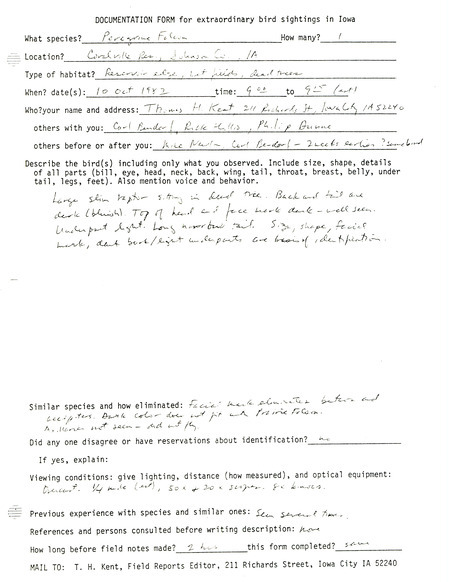 DOCUMENTATION FORM for extraordinary bird sightings in Iowa
What species? Peregrine Falcon How many? 1
Location? Coralville Res, Johnson Co, IA
Type of habitat? Reservoir edge, wet fields, dead trees
When? date(s): 10 Oct 1982 time: 9 to 9
Who?your name and address: Thomas H Kent 211 Richards St, Iowa City IA 52240
others with you: Carl Bendorf, Rick Hollis, Philip
others before or after you: Mike Newlon Carl Bendorf - 2 weeks earlier ? same bird
Describe the bird(s) including only what you observed. Include size, shape, details
of all parts (bill, eye, head, neck, back, wing, tail, throat, breast, belly, under
tail, legs, feet). Also mention voice and behavior.
Large slim raptor sitting in dead tree. Back and tail are
dark (bluish). Top of head and face mark dark - well seen.
Underpart light. Long narrow tail. Size, shape, facial
mark, dark back/light underparts are basis of identification.
Similar species and how eliminated: Facial mark eliminates buteos and
accipiters. Dark color does not fit with Prairie Falcon.
not seen - did not fly.
Did any one disagree or have reservations about identification? no
If yes, explain:
Viewing conditions: give lighting, distance (how measured), and optical equipment:
1/4 mile (est), 50x + 20x scopes.
Previous experience with species and similar ones: Seen several times.
References and persons consulted before writing description: none
How long before field notes made? 2 hrs this form completed? same
MAIL TO: T. H. Kent, Field Reports Editor, 211 Richards Street, Iowa City IA 52240